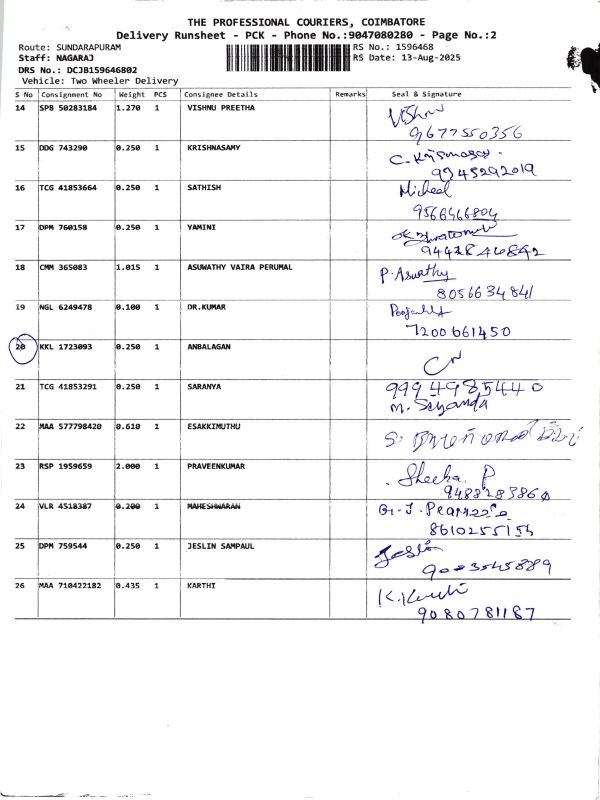 THE PROFESSIONAL COURIERS, COIMBATORE
Delivery Runsheet - PCK - Phone No.:9047080280 - Page No.:2
Route: SUNDARAPURAM RS No.: 1596468
Staff: NAGARAJ RS Date: 13-Aug-2025
DRS No.: DCJB159646802
Vehicle: Two Wheeler Delivery
S No Consignment No Weight PCS Consignee Details Remarks Seal & Signature
14 SPB 50283184 1.270 1 VISHNU PREETHA
9677550356
15 DDG 743290 0.250 1 KRISHNASAMY
9345292019
16 TCG 41853664 0.250 1 SATHISH Micheal
9566466804
17 DPM 760158 0.250 1 YAMINI
18 CMM 365083 1.015 1 ASUWATHY VAIRA PERUMAL P. Asuwathy
8056634841
19 NGL 6249478 0.100 1 DR.KUMAR
7200661450
20 KKL 1723093 0.250 1 ANBALAGAN
21 TCG 41853291 0.250 1 SARANYA 9994985440
22 MAA 577798420 0.610 1 ESAKKIMUTHU
23 RSP 1959659 2.000 1 PRAVEENKUMAR
24 VLR 4518387 0.200 1 MAHESHWARAN
8610255154
25 DPM 759544 0.250 1 JESLIN SAMPAUL Jeslin
26 MAA 710422182 0.435 1 KARTHI
9080781187